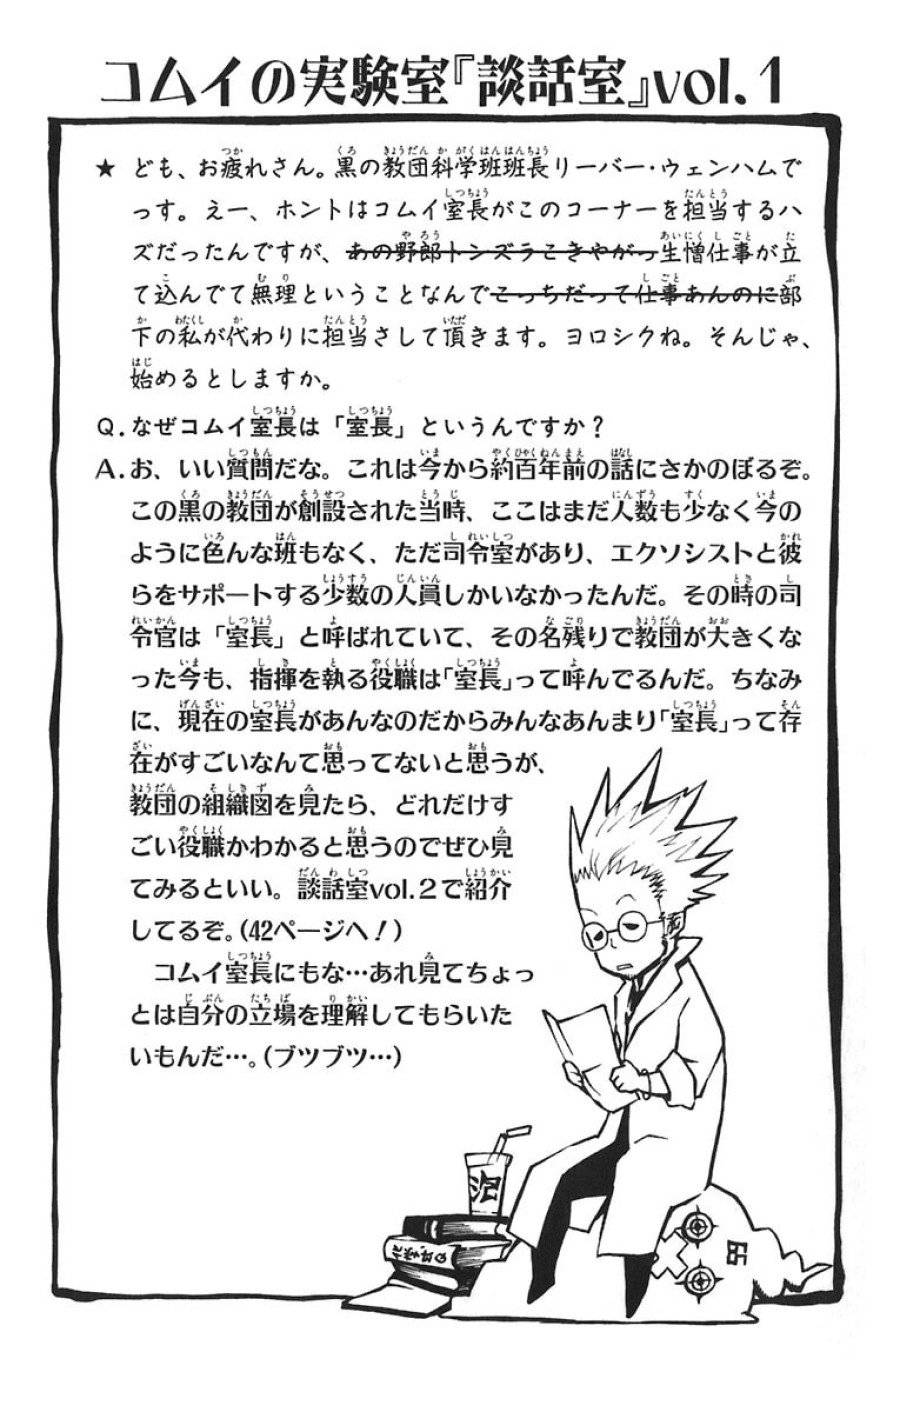 コムイの実験室『談話室』vol.1
★ ども、お疲れさん。黒の教団科学班班長リーバー・ウェンハムで
っす。えー、ホントはコムイ室長がこのコーナーを担当するハ
ズだったんですが、あの野郎トンズラこきやがっ生憎仕事が立
て込んでて無理ということなんでこっちだって仕事あんのに部
下の私が代わりに担当さして頂きます。ヨロシクね。そんじゃ、
始めるとしますか。
Q.なぜコムイ室長は「室長」というんですか？
A.お、いい質問だな。これは今から約百年前の話にさかのぼるぞ。
この黒の教団が創設された当時、ここはまだ人数も少なく今の
ように色んな班もなく、ただ司令室があり、エクソシストと彼
らをサポートする少数の人員しかいなかったんだ。その時の司
令官は「室長」と呼ばれていて、その名残りで教団が大きくな
った今も、指揮を執る役職は「室長」って呼んでるんだ。ちなみ
に、現在の室長があんなのだからみんなあんまり「室長」って存
在がすごいなんて思ってないと思うが、
教団の組織図を見たら、どれだけす
ごい役職かわかると思うのでぜひ見
てみるといい。談話室vol.2で紹介
してるぞ。(42ページへ！)
コムイ室長にもな…あれ見てちょっ
とは自分の立場を理解してもらいた
いもんだ…。(ブツブツ…)
泡
65